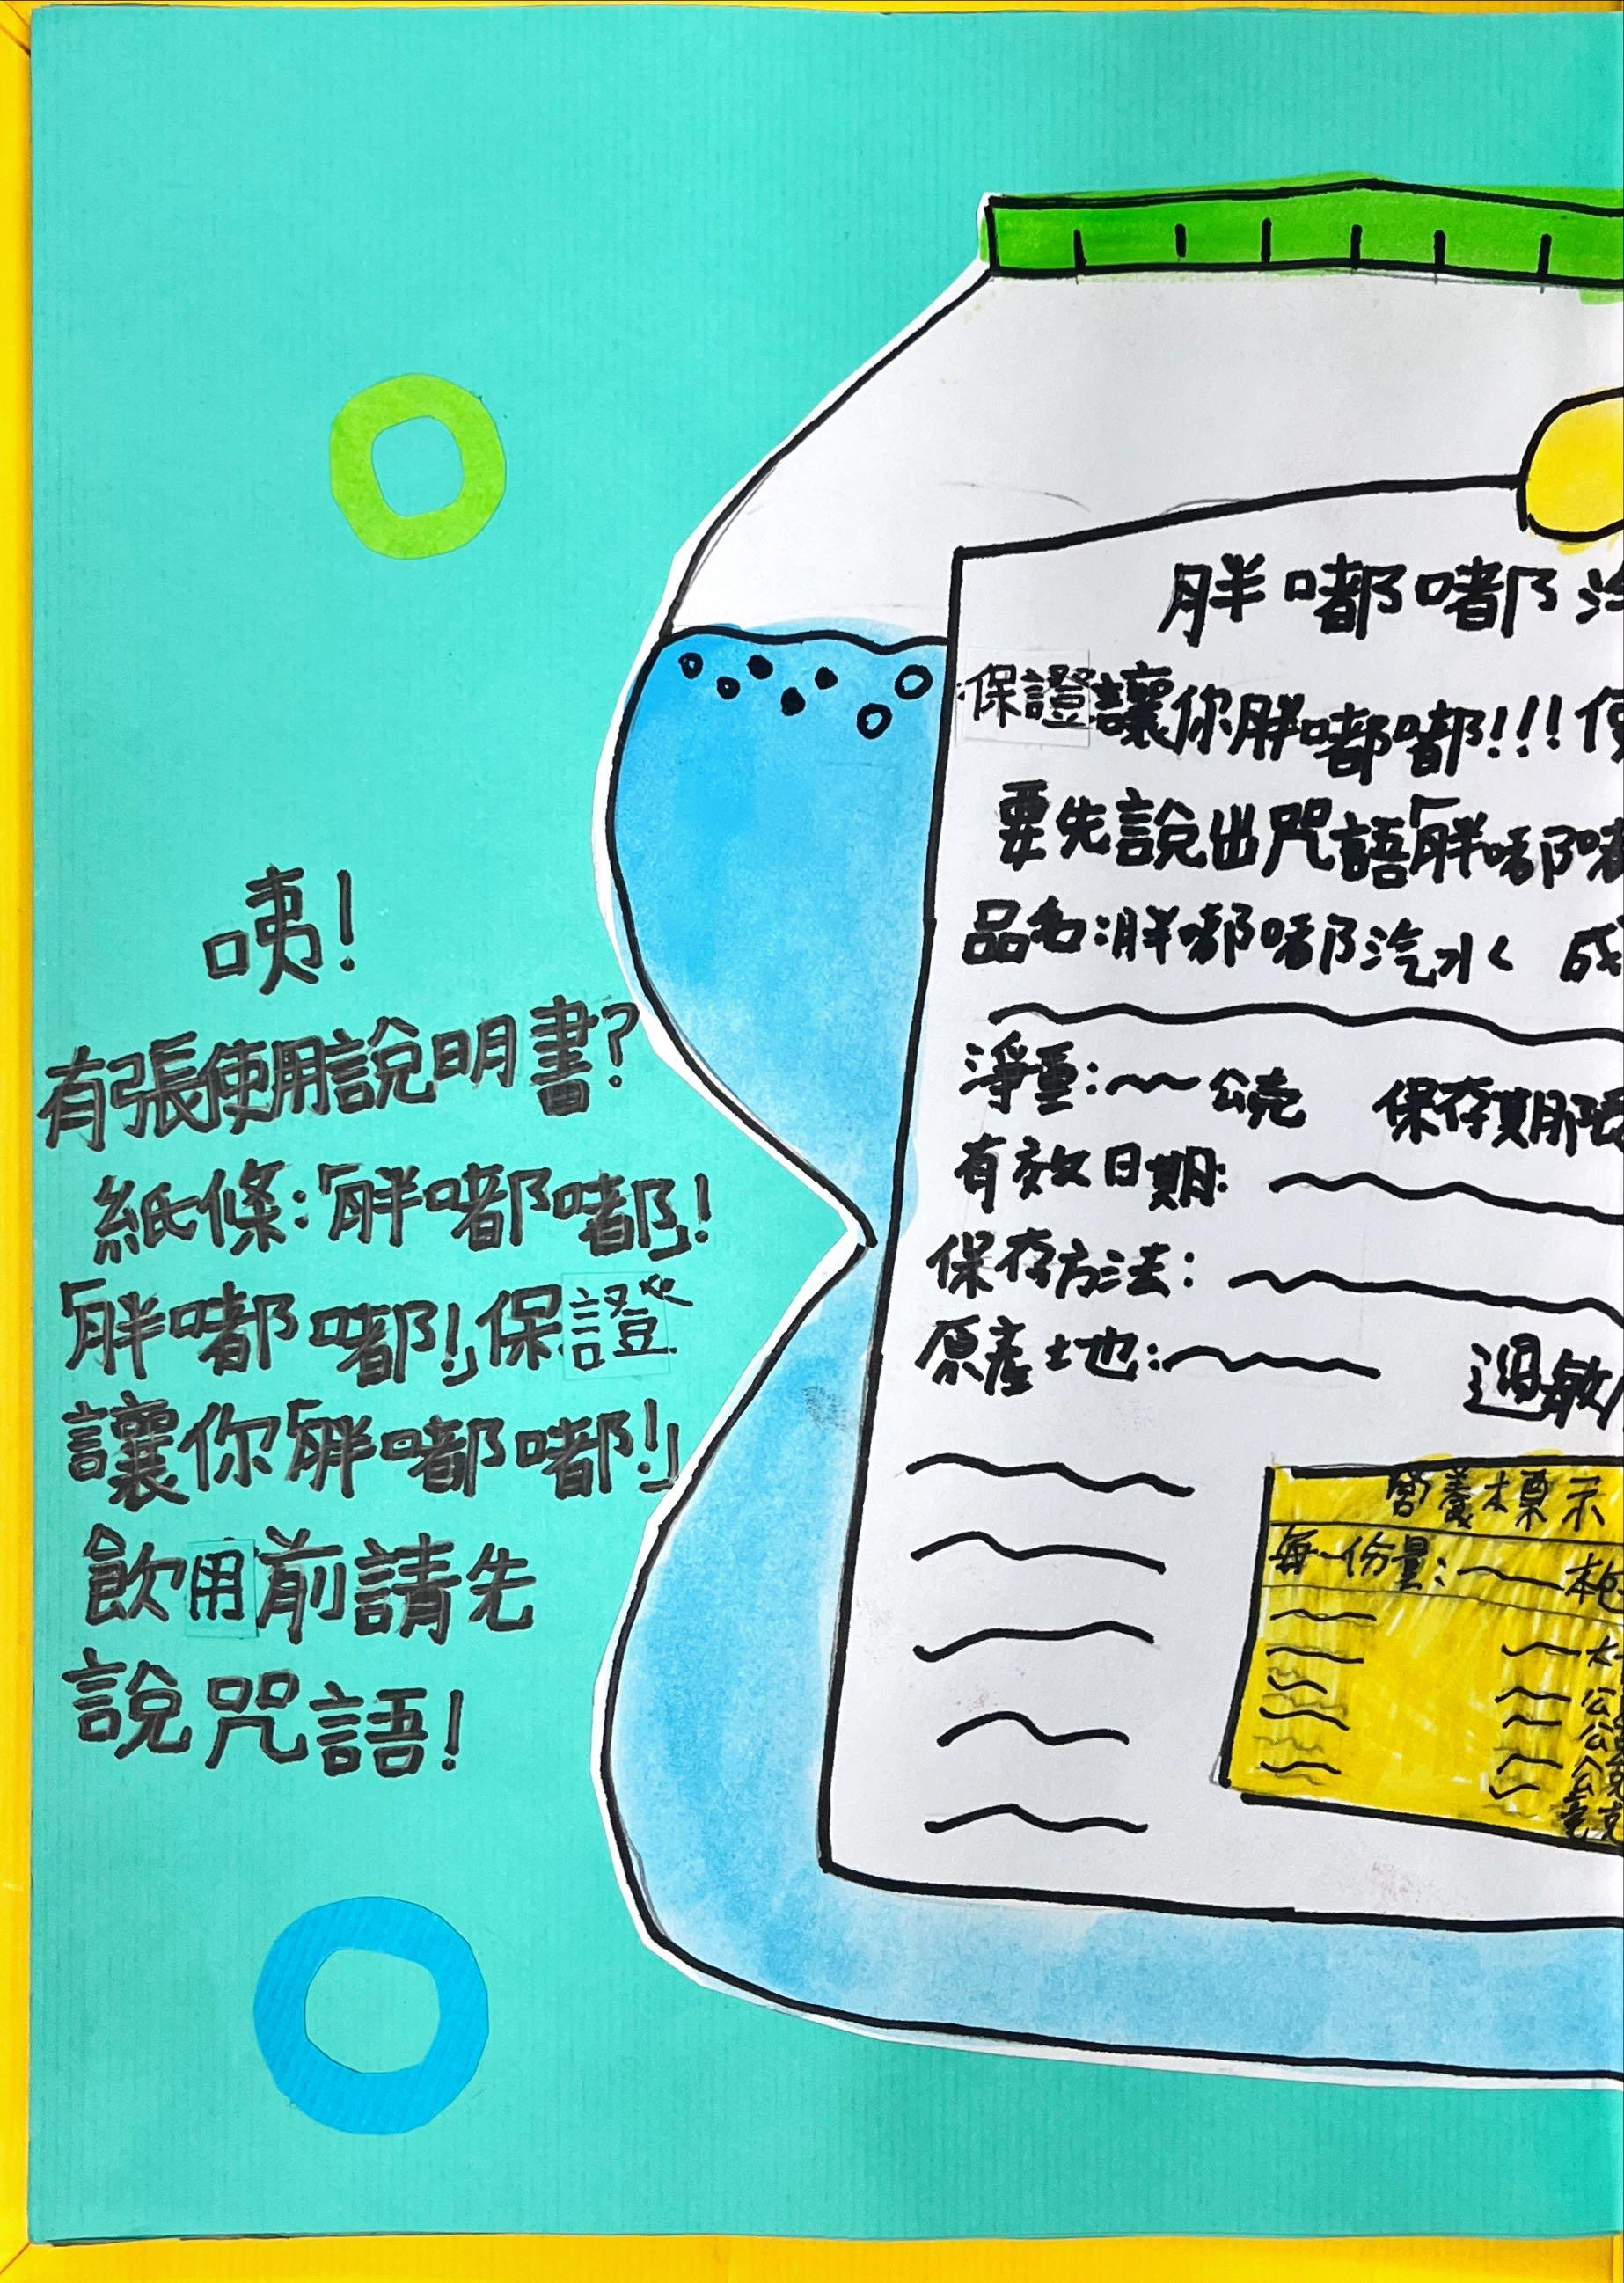 咦！
有張使用說明書？
紙條：「胖嘟嘟」！
「胖嘟嘟！」保證
讓你「胖嘟嘟！」
飲用前請先
說咒語！
胖嘟嘟
保證讓你胖嘟嘟!!!使
要先說出咒語「胖嘟嘟
品名：胖嘟嘟汽水 成
淨重：～～公克 保存期限
有效日期：
保存方法：
原產地：
過敏
營養標示
每一份量： 本包
大
公
公
公克
毫克